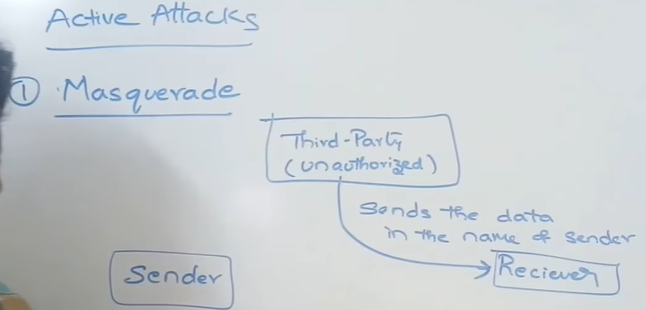 Active Attacks
① Masquerade
Third-Party
(unauthorized)
Sends the data
in the name of sender
Sender
Reciever